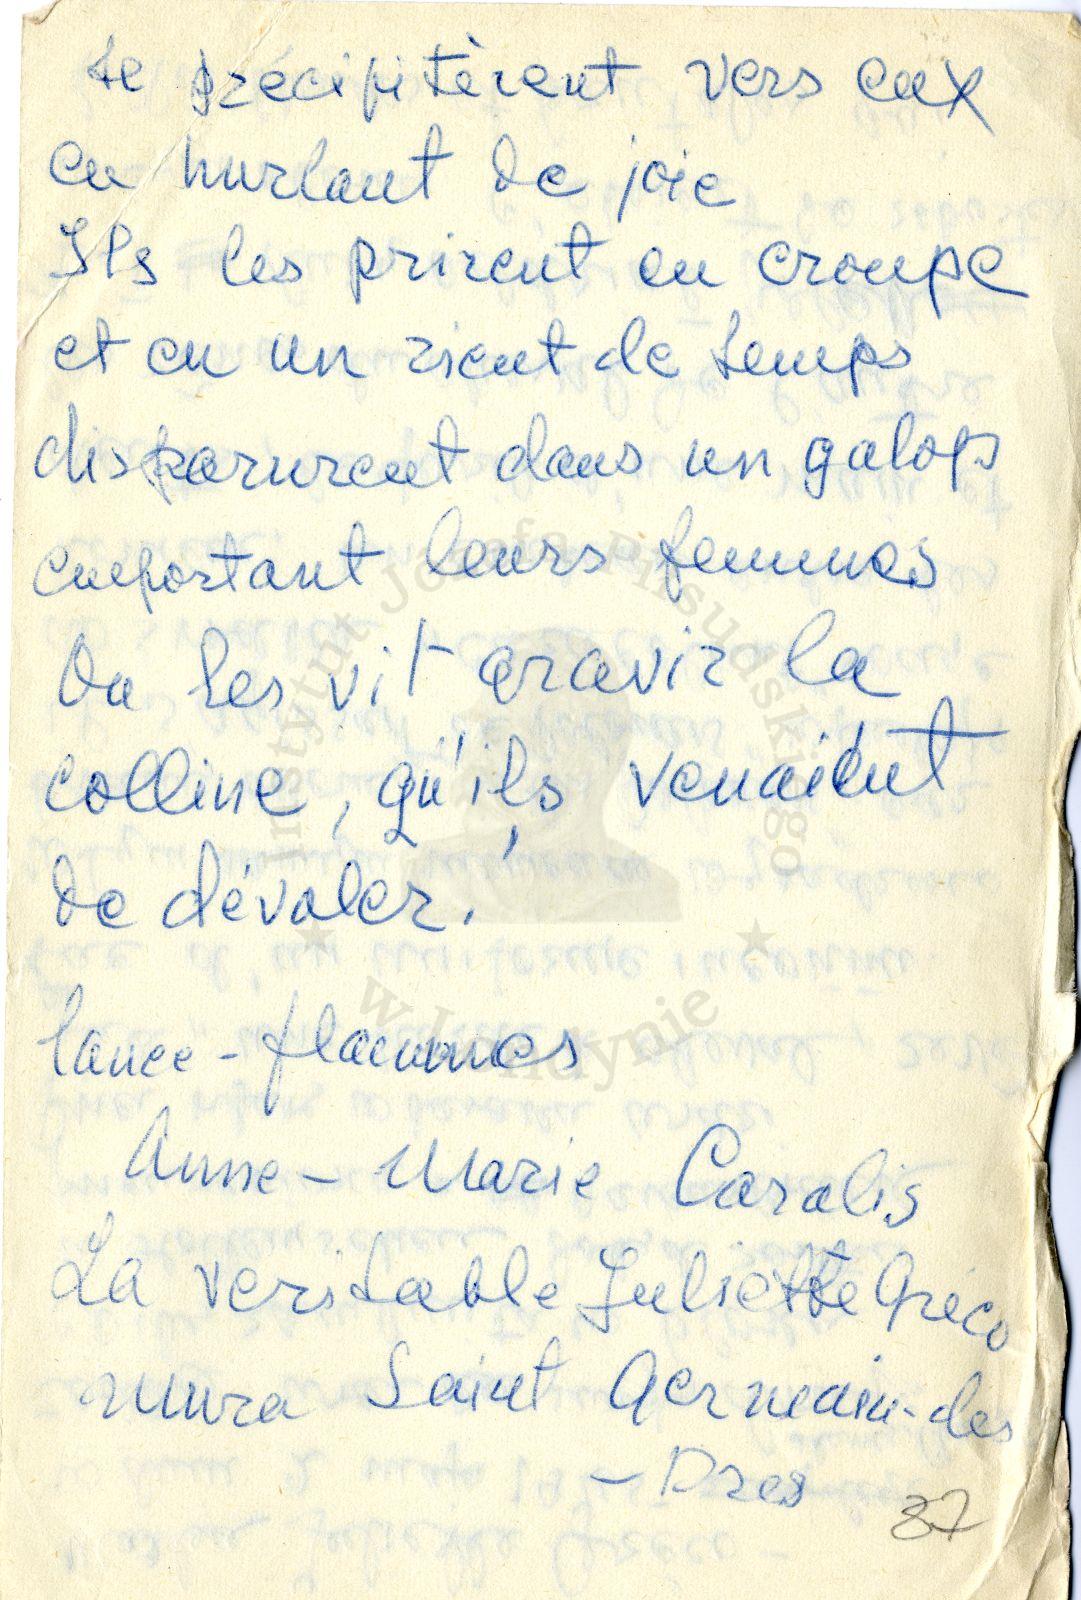 se précipitèrent vers eux
en hurlant de joie
Ils les prirent en croupe
et en un rient de temps
disparurent dans un galops
emportant leurs femmes
On les vit gravir la
colline, qu'ils venaient
de dévaler.
lance-flammes
Anne-Marie Caralis
La veritable Juliette Gréco
mura Saint Germain-des
-Pres
37
Instytut Józefa Piłsudskiego
w Londynie